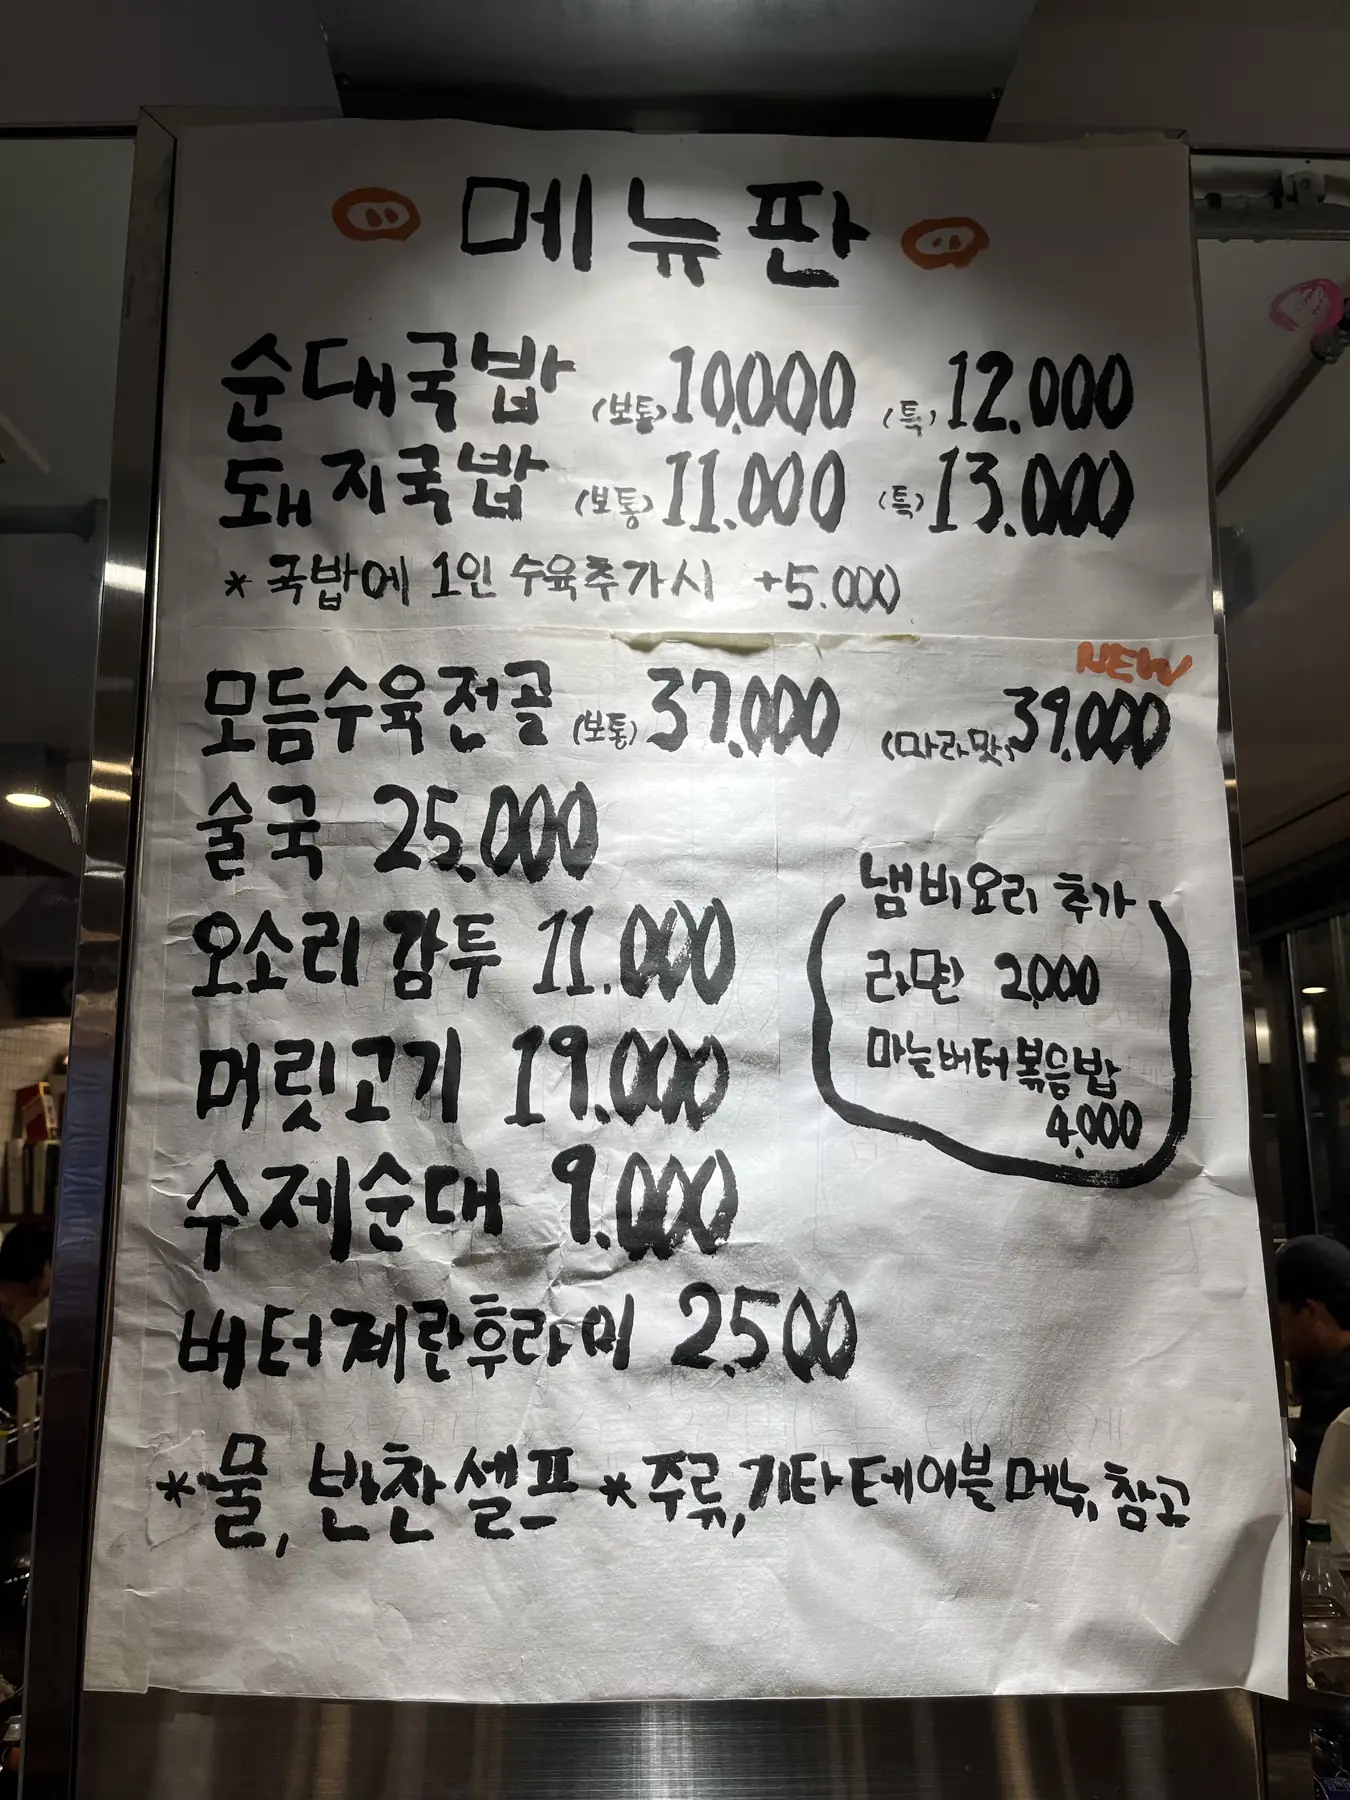 메뉴판
순대국밥 (보통) 10,000 (특) 12.000
돼지국밥 (보통) 11.000 (특) 13.000
* 국밥에 1인 수육추가시 +5.000
NEW
모듬수육전골 (보통) 37.000 (마라맛) 39.000
술국 25.000
오소리감투 11.000
머릿고기 19.000
수제순대 9.000
버터계란후라이 2.500
냄비요리 추가
라면 2,000
마늘버터볶음밥
4,000
*물, 반찬셀프 *주류,기타테이블메뉴,참고